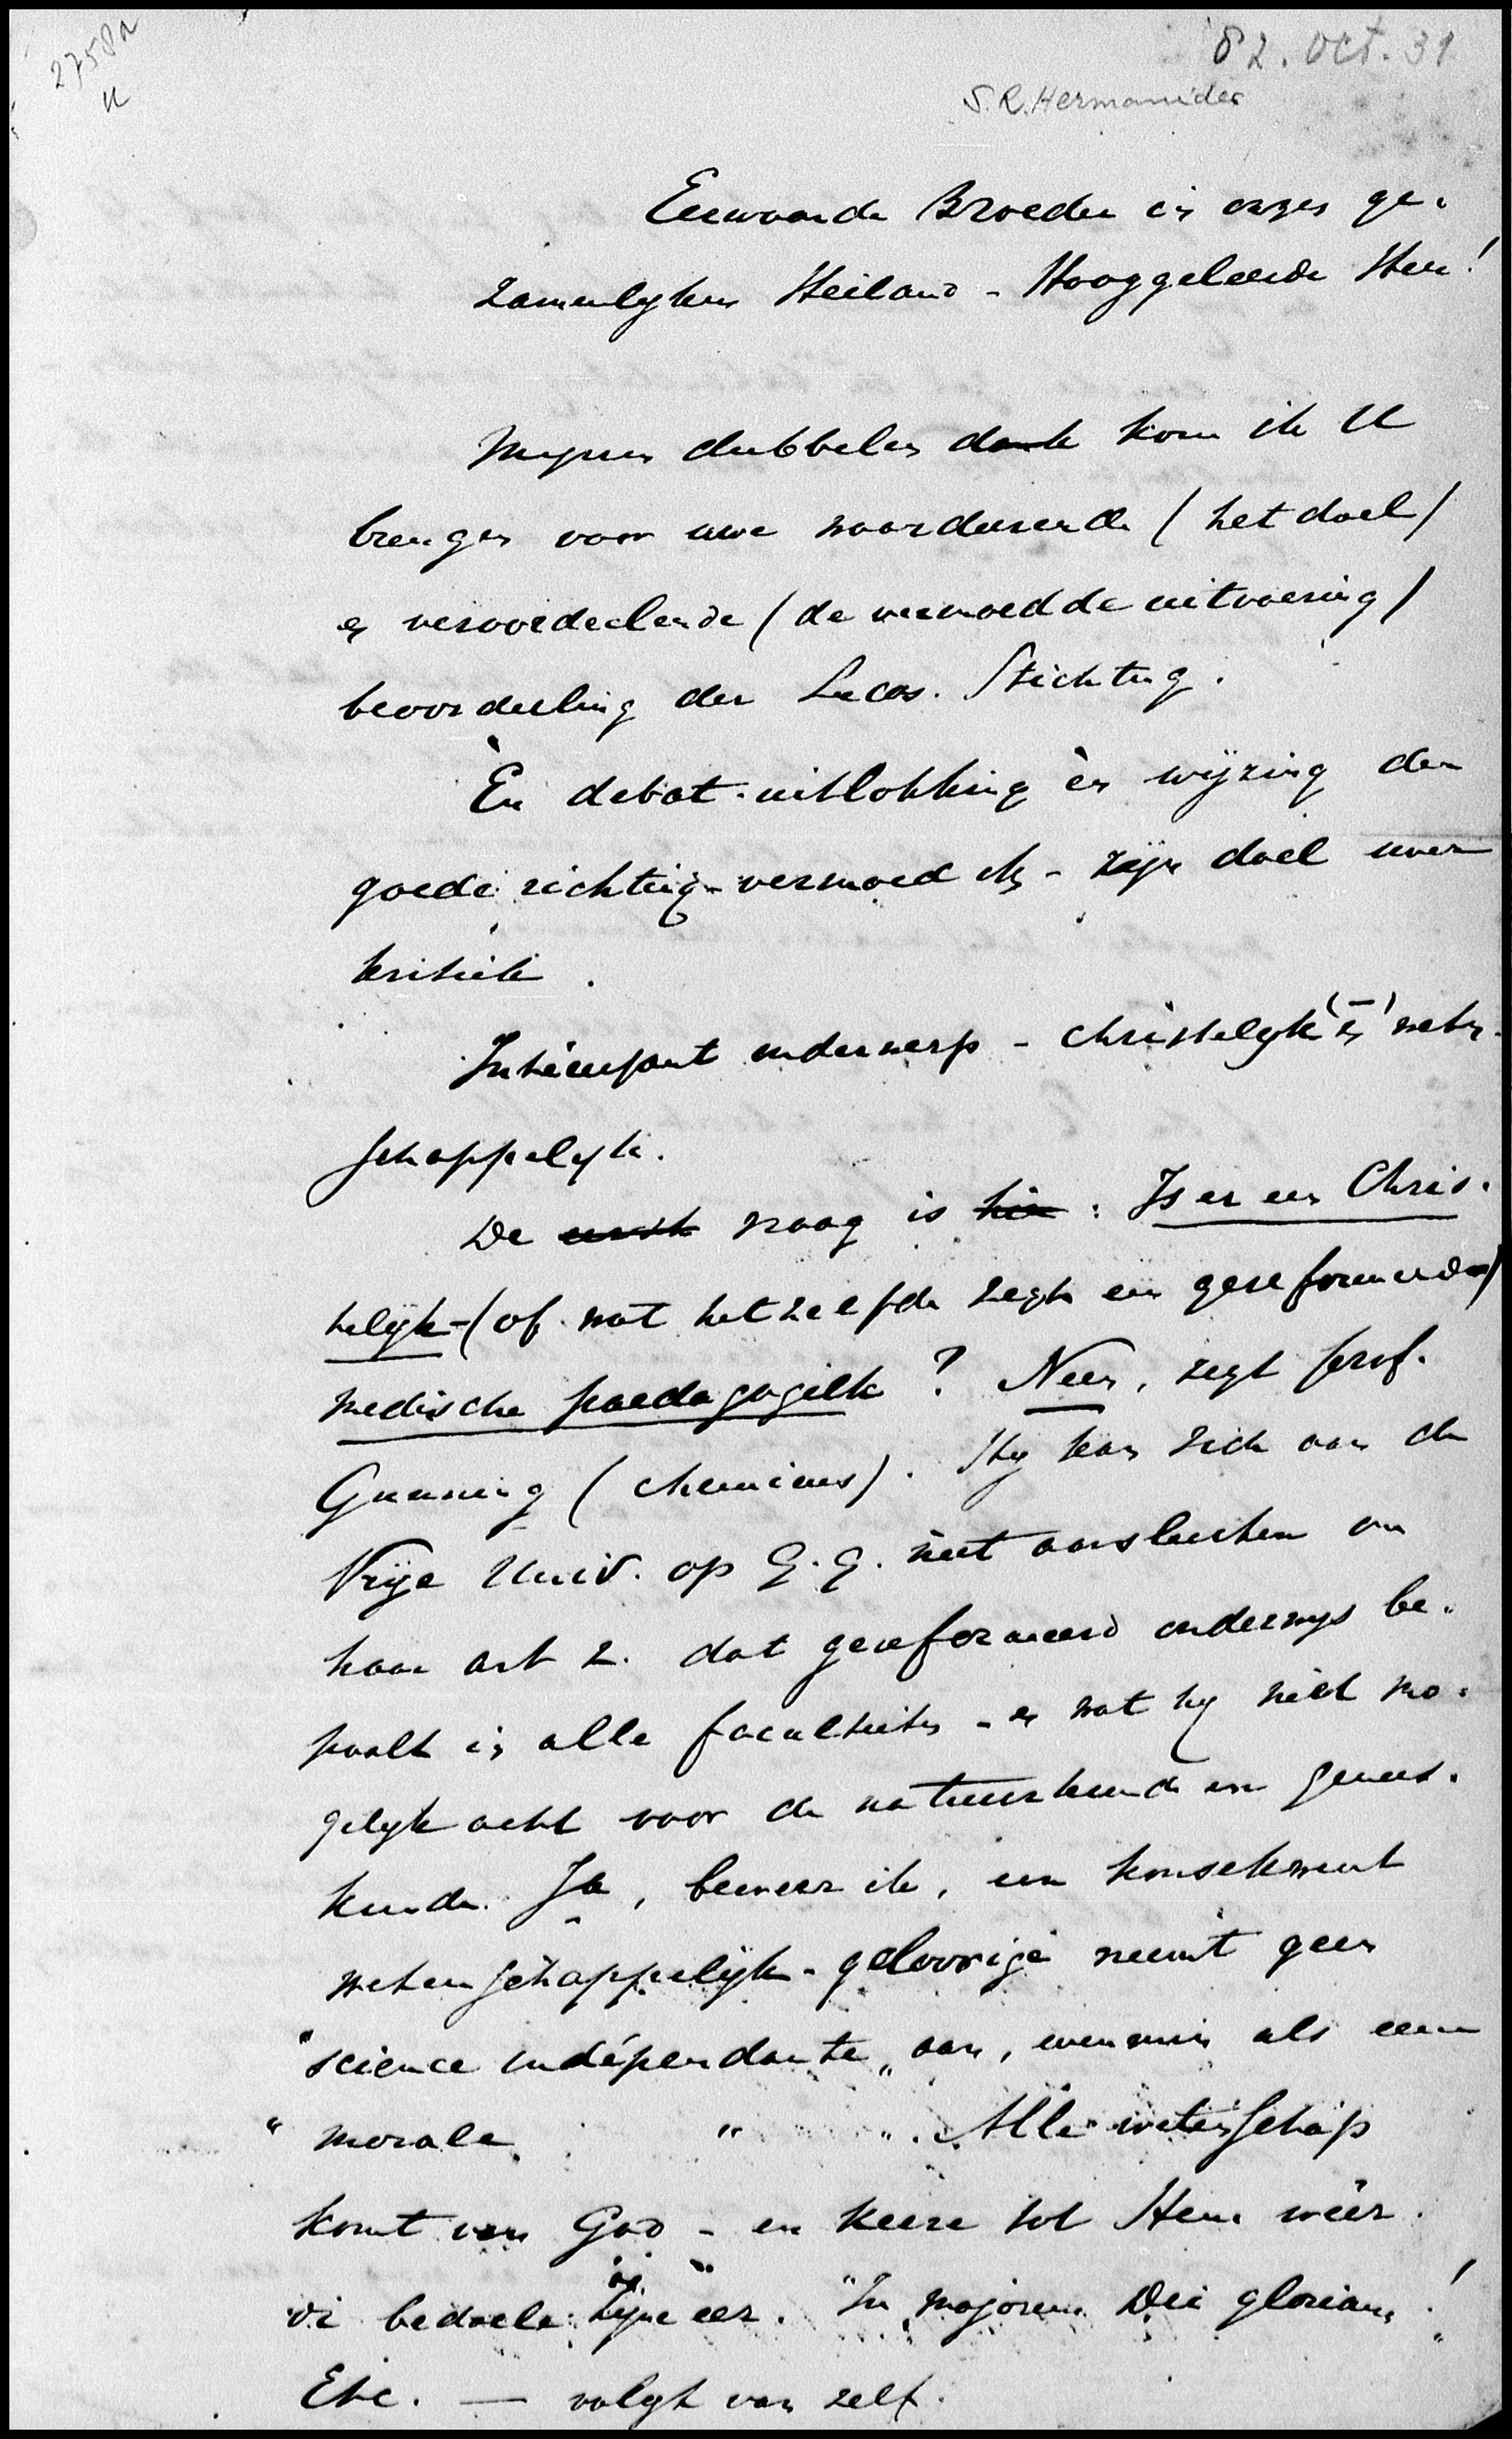 2758a
'82. Oct. 31
S.R. Hermanides
Eerwaarde Broeder in onzen ge-
zamenlyken Heiland - Hooggeleerde Heer!
Mynen dubbelen dank kom ik U
brengen voor uwe waardeerende (het doel)
en veroordeelende (de vermoedde uitvoering)
beoordeeling der Lucas-Stichting.
Èn debat-uitlokking èn wijzing der
goede richting - vermoed ik - zijn doel uwer
kritiek.
Interessant onderwerp - christelyk (-) en weten-
schappelyk.
De eerste vraag is hier: Is er een Chris-
telijk - (of wat hetzelfde zegt een gereformeerde)
medische paedagogiek? Neen, zegt prof.
Gunning (chemicus). Hy kan zich aan de
Vrije Univ. op G.G. niet aansluiten om
haar art 2. dat gereformeerd onderwys be-
paalt in alle faculteiten - en wat hy niet mo-
gelyk acht voor de natuurkunde en genees-
kunde. Ja, beweer ik, een konsekwent
wetenschappelijk-geloovige neemt geen
"science indépendante" aan, evenmin als eene
"morale " ". Alle wetenschap
komt van God - en keere tot Hem wéér.
Zi bedoele Zijne eer. "In majorem Dei gloriam!"
Etc. — volgt van zelf.